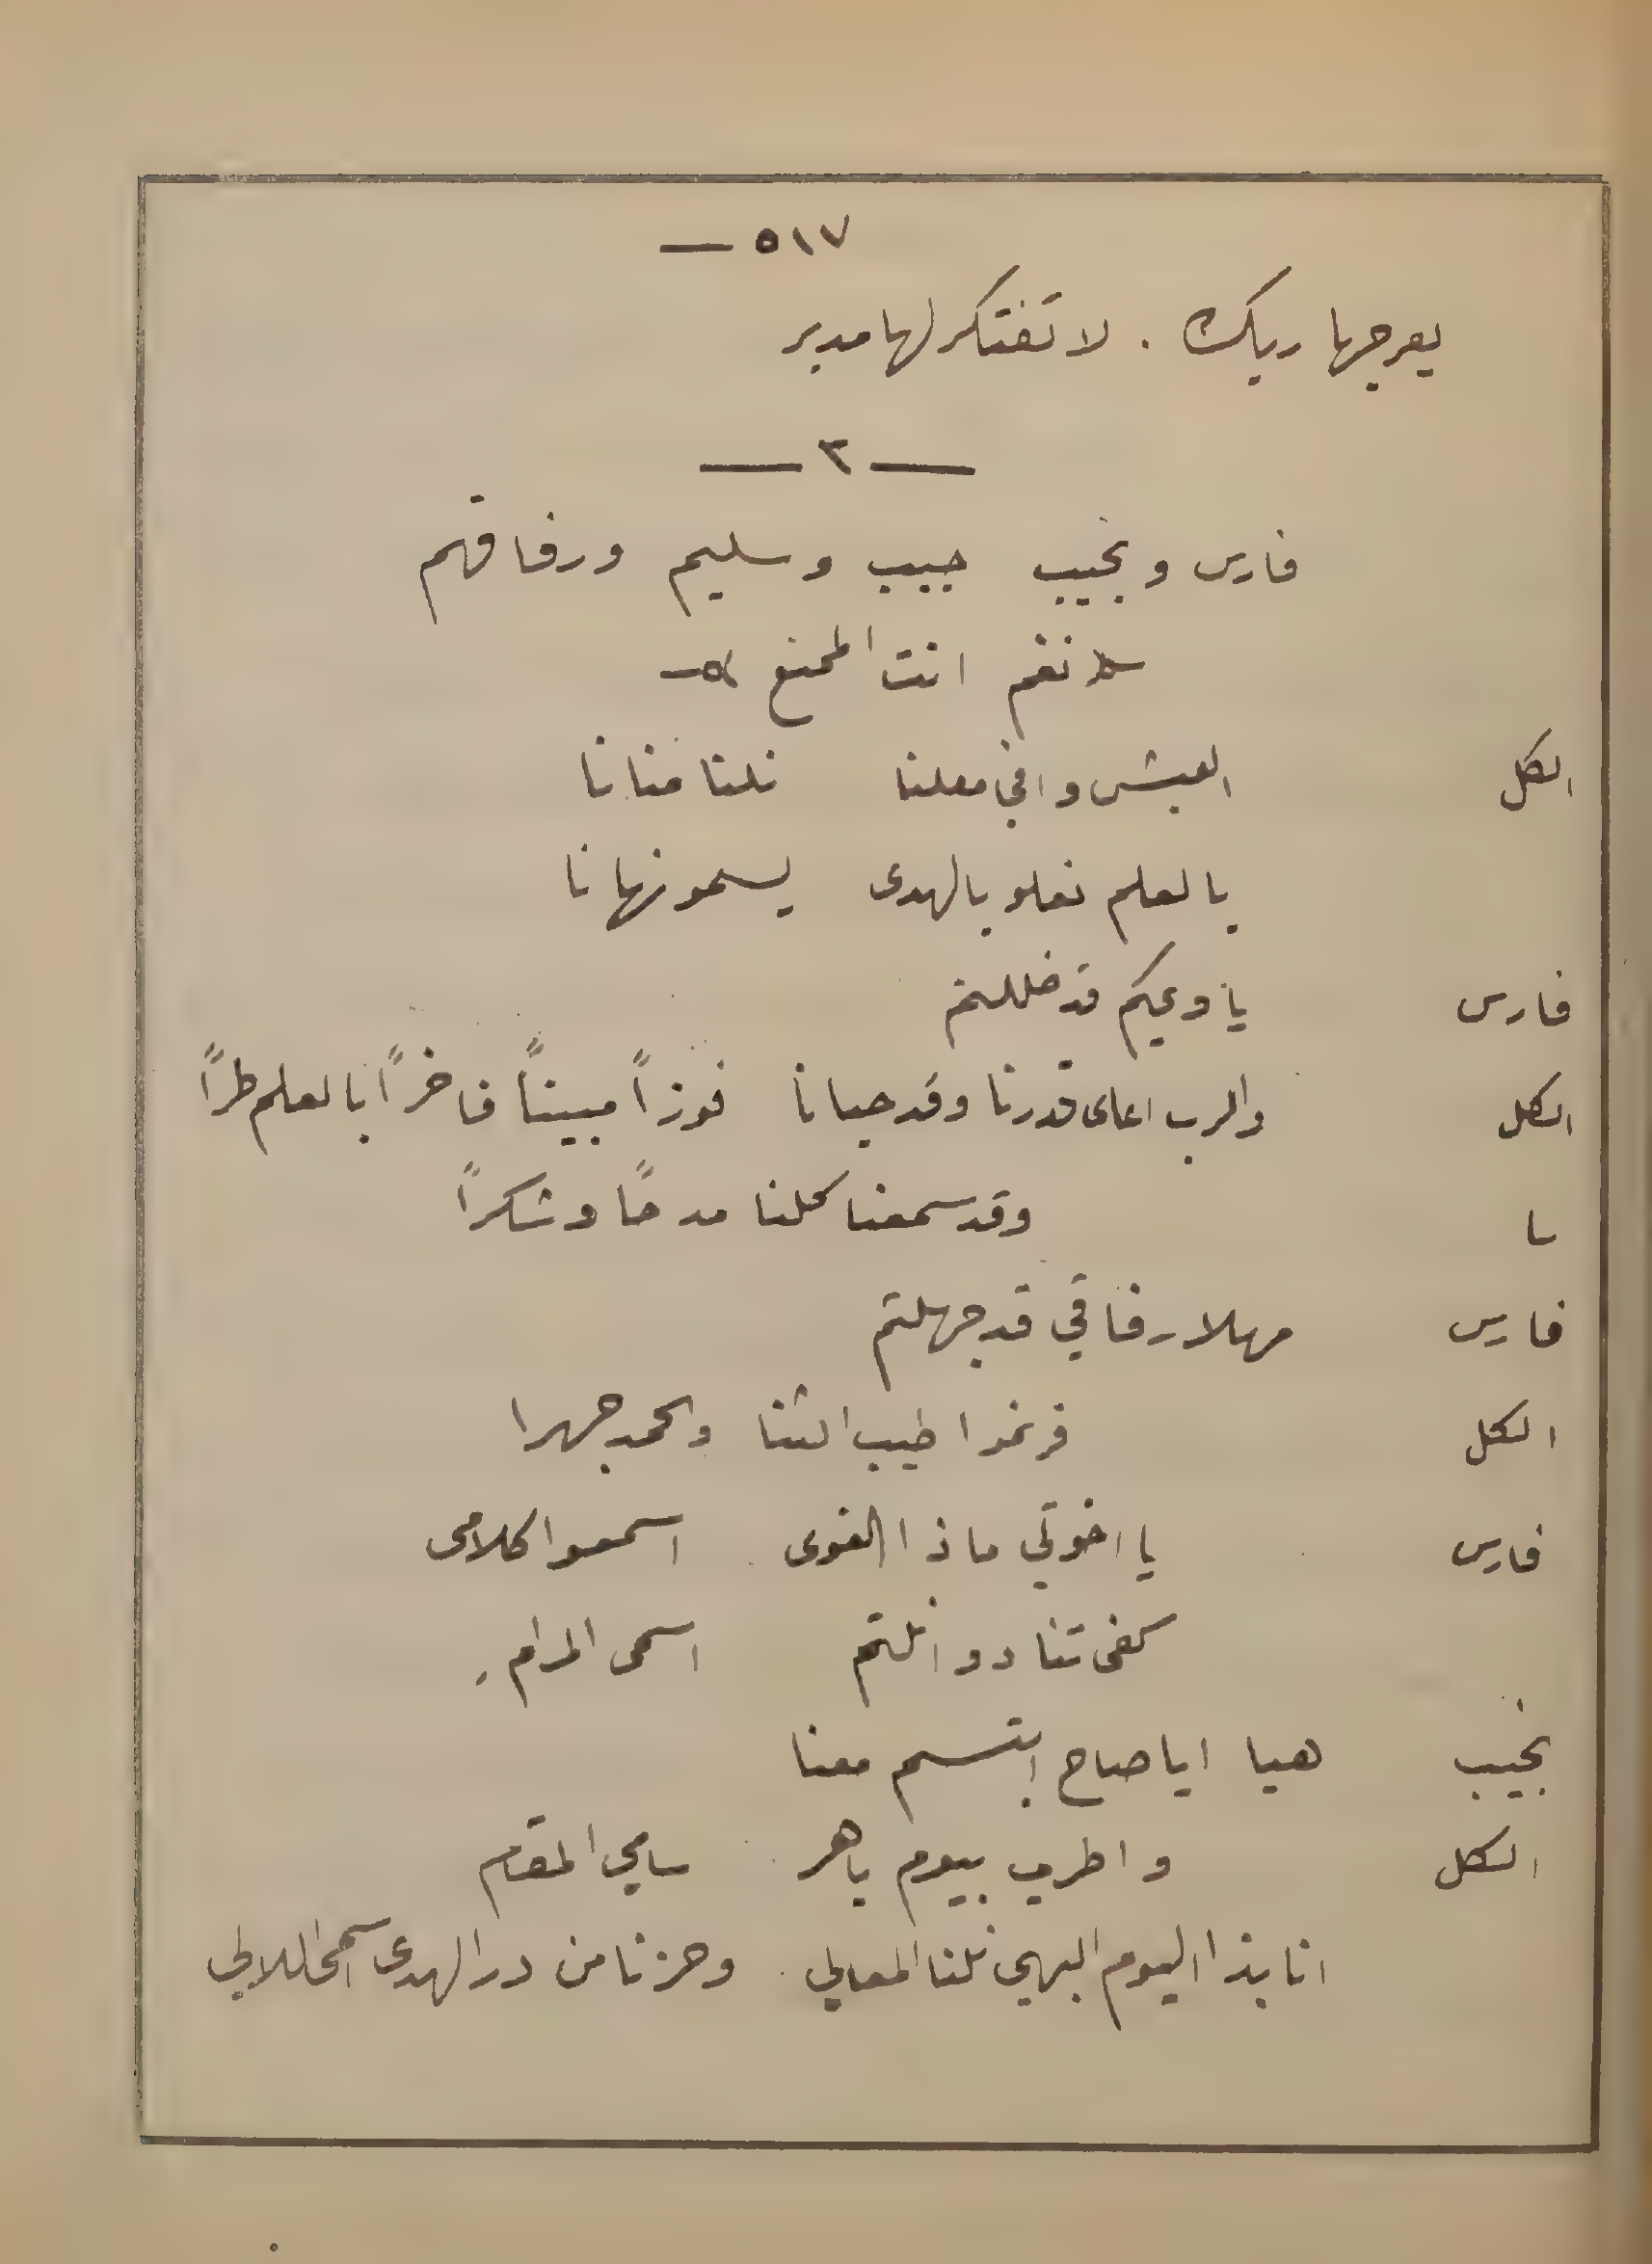 ٥١٧ —
يعرجها ربك . لا تفتكر لها مدبر
— ٣ —
فارس و نجيب حبيب وسليم ورفاقهم
نغم انت الممنع
الكل العيش وافي معلنا نلنا منانا
بالعلم نعلو بالهدى يسمو نهانا
فارس يا ويحكم قد ضللتم
الكل والرب اعلى قدرنا وقد حبانا فوزاً مبيناً فاخراً بالعلم طراً
سا وقد سمعنا كلنا مدحًا وشكراً
فارس مهلا رفاقي قد جهلتم
الكل فرنموا طيب الثنا والحمد جهرا
فارس يا اخوتي ماذا الغوى اسمعوا كلامى
كفى تنادوا نلتم اسمى المرام .
نجيب هيا ايا صاح ابتسم معنا
الكل واطرب بيوم باهر سامي المقام
انا بذا اليوم البهي نلنا المعالي وحزنا من در الهدى اسمى اللالي